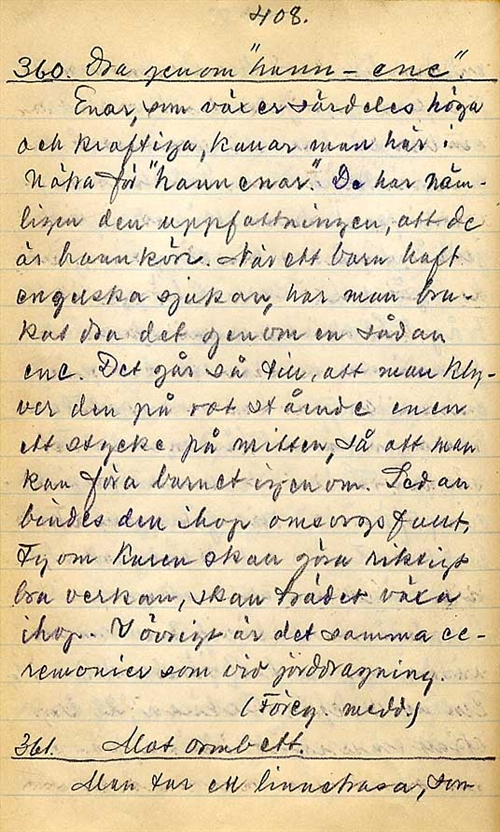 408.
360. Dra genom "hann-ene".
Enar, som växer särdeles höga
och kraftiga, kallar man här i
Näkta för "hannenar". De har näm-
ligen den uppfattningen, att de
är hannkön. När ett barn haft
engelska sjukan, har man bru-
kat dra det genom en sådan
ene. Det går så till, att man kly-
ver den på rot stående enen
ett stycke på mitten, så att man
kan föra barnet igenom. Sedan
bindes den ihop omsorgsfullt,
ty om kuren skall göra riktigt
bra verkan, skall trädet växa
ihop. I övrigt är det samma ce-
remonier som vid jorddragning.
(Föreg. medd.)
361. Mot ormbett.
Man tar ett linnetrasa, som